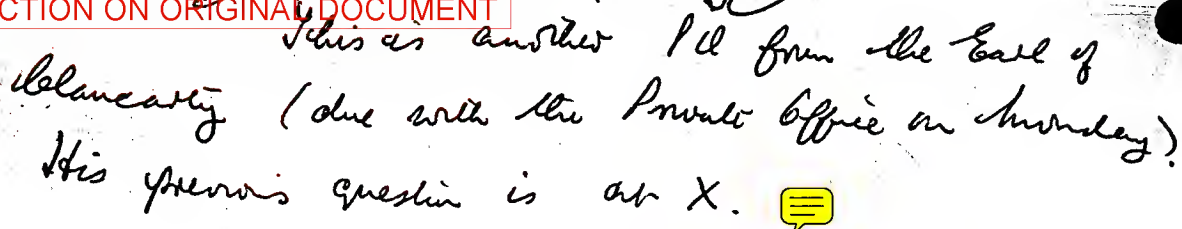 CTION ON ORIGINAL DOCUMENT
This is another PQ from the Earl of
Clancarty (due with the Private Office on Monday).
His previous question is at X.